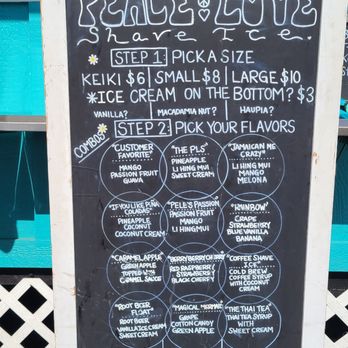 PEACE LOVE
Shave Ice.
STEP 1: PICK A SIZE
KEIKI $6 SMALL $8 LARGE $10
*ICE CREAM ON THE BOTTOM? $3
VANILLA? MACADAMIA NUT? HAUPIA?
STEP 2: PICK YOUR FLAVORS
COMBOS
"CUSTOMER
FAVORITE"
MANGO
PASSION FRUIT
GUAVA
"THE PLS"
PINEAPPLE
LI HING MUI
SWEET CREAM
"JAMAICAN ME
CRAZY"
LI HING MUI
MANGO
MELONA
"IF YOU LIKE PIÑA
COLADAS"
PINEAPPLE
COCONUT
COCONUT CREAM
"PELE'S PASSION"
PASSION FRUIT
MANGO
LI HING MUI
"RAINBOW"
GRAPE
STRAWBERRY
BLUE VANILLA
BANANA
"CARAMEL APPLE"
GREEN APPLE
TOPPED WITH
CARAMEL SAUCE
"BERRY BERRY BERRY"
RED RASPBERRY
STRAWBERRY
BLACK CHERRY
"COFFEE SHAVE
ICE"
COLD BREW
COFFEE SYRUP
WITH COCONUT
CREAM
"ROOT BEER
FLOAT"
ROOT BEER
VANILLA ICE CREAM
SWEET CREAM
"MAGICAL MERMAID"
GRAPE
COTTON CANDY
GREEN APPLE
"THE THAI TEA"
THAI TEA SYRUP
WITH
SWEET CREAM